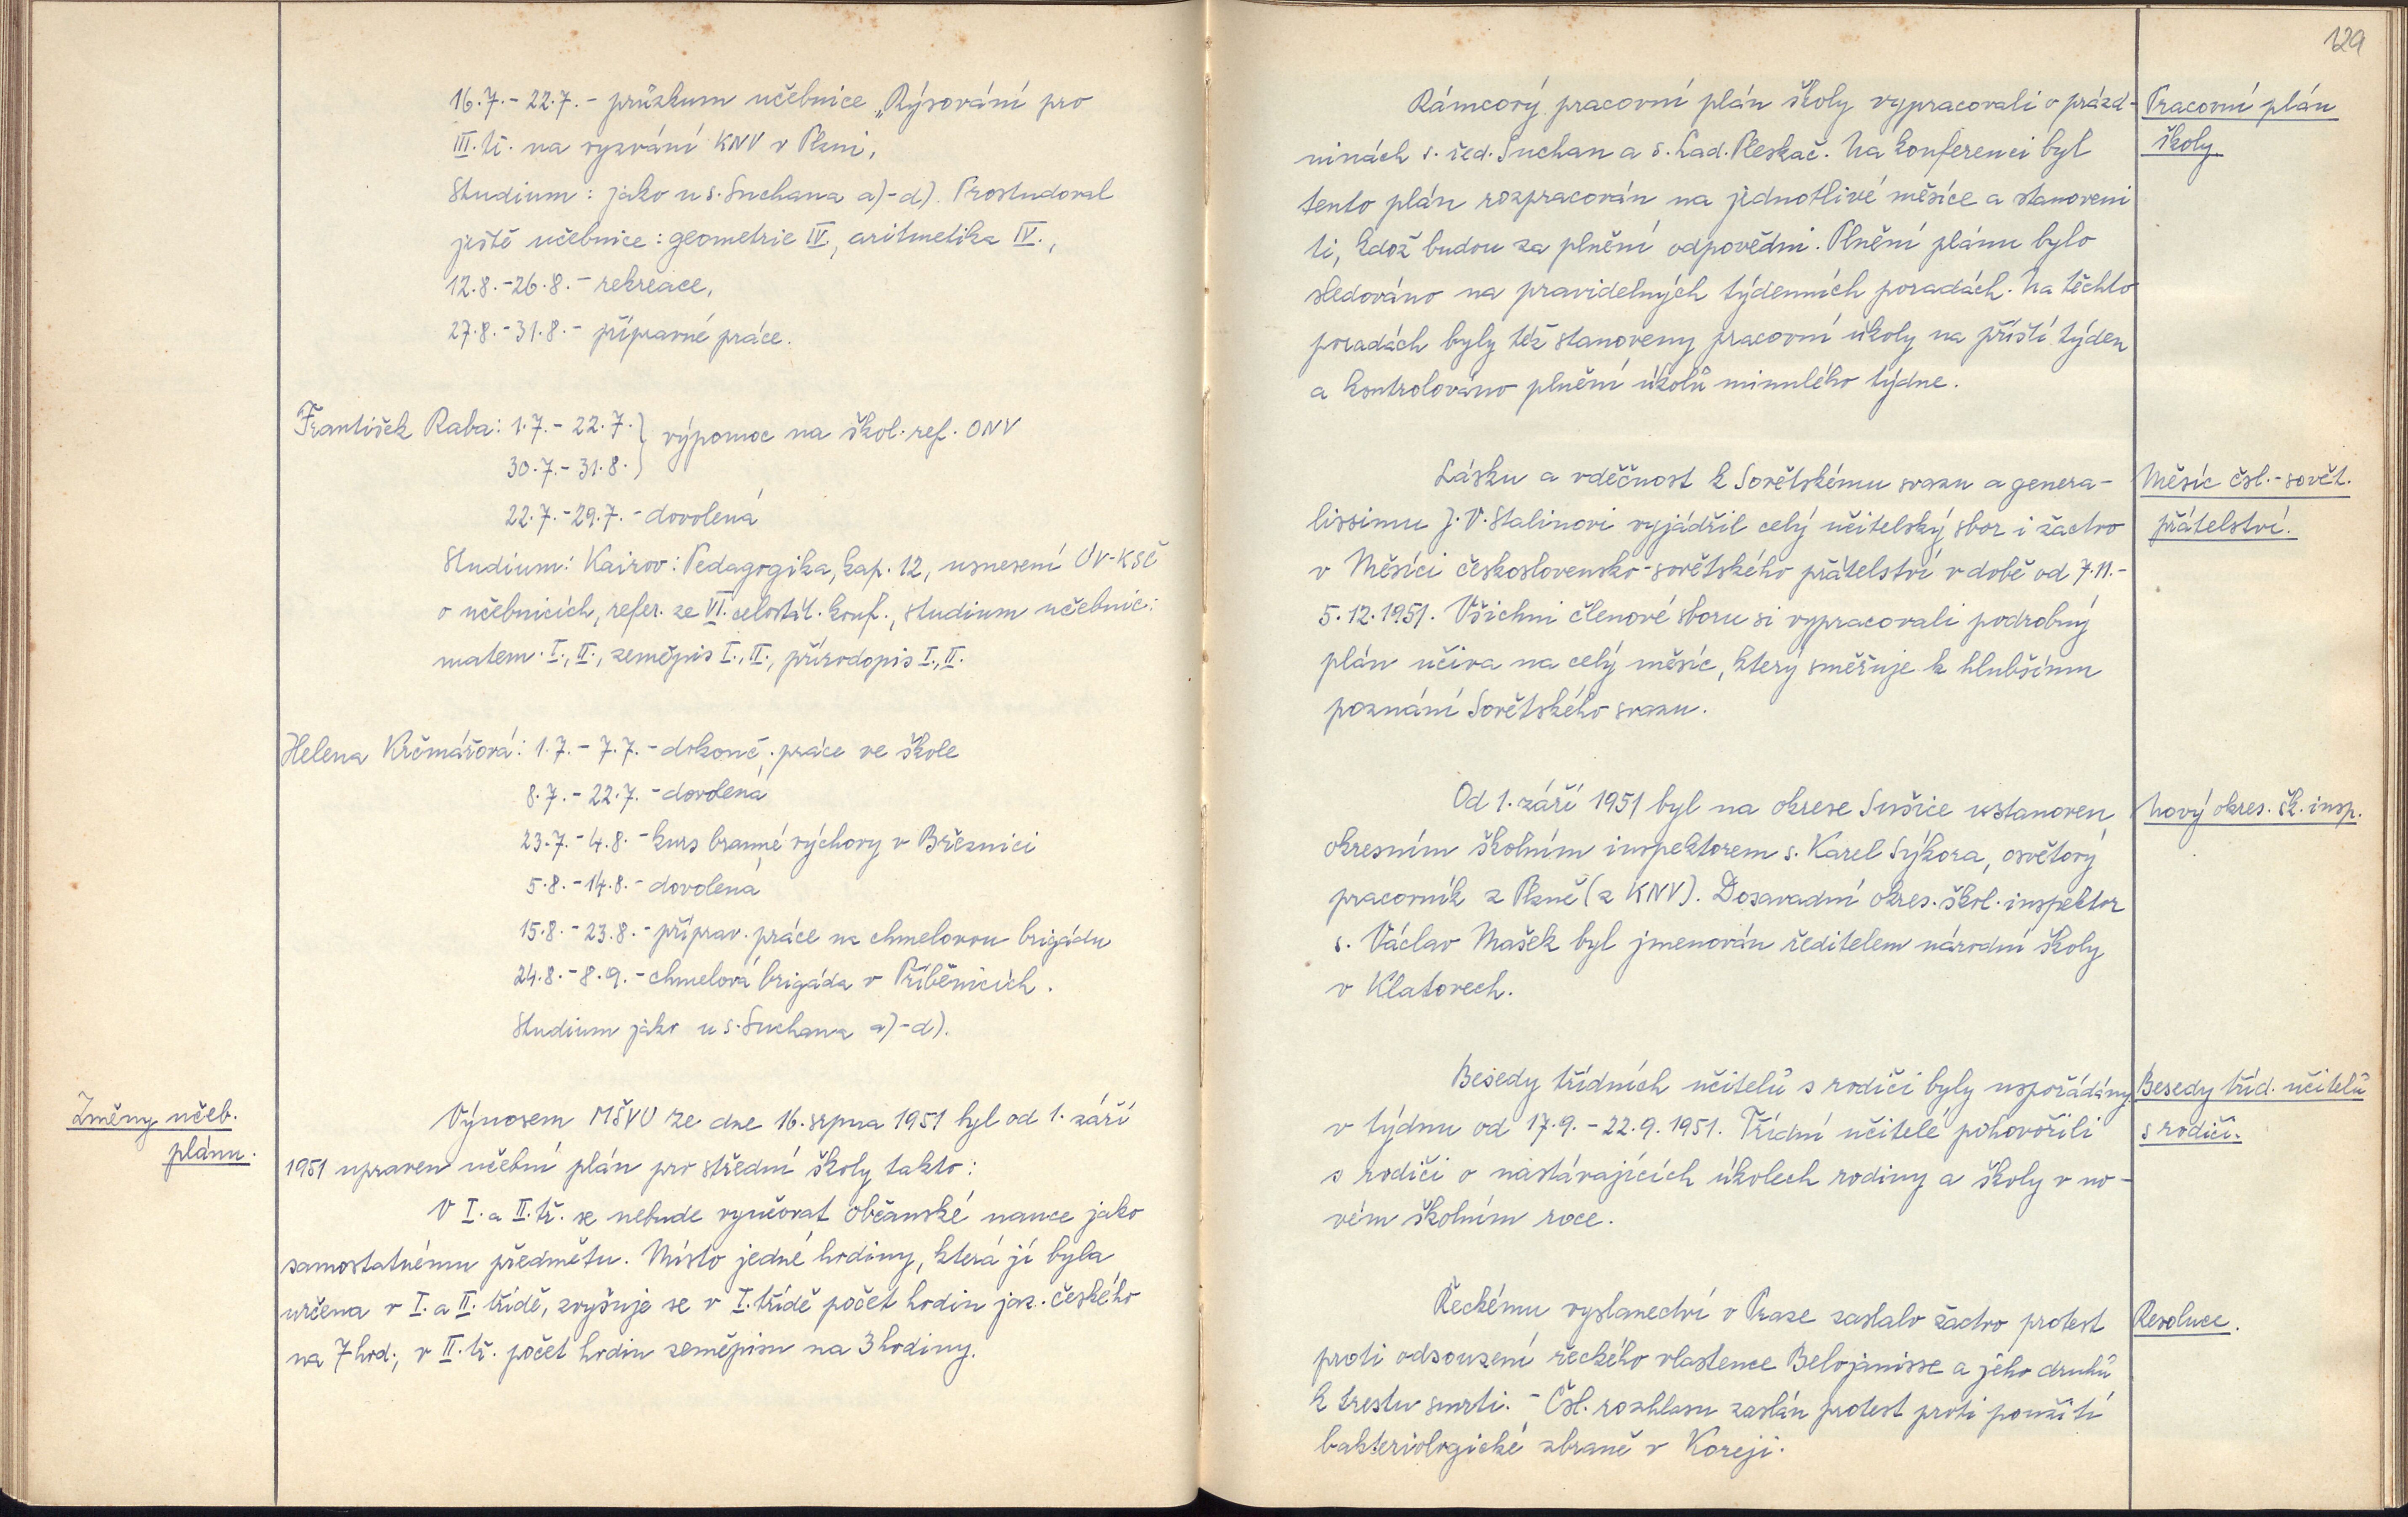 16.7.-22.7.- průzkum učebnice „Rýsování pro
III. tř. na vyzvání KNV v Plzni,
Studium: jako u s. Suchana a)-d). Prostudoval
ještě učebnice: geometrie IV., aritmetika IV.,
12.8.-26.8.- rekreace,
27.8.-31.8.- přípravné práce.
František Raba: 1.7.- 22.7. } výpomoc na škol. ref. ONV
30.7.- 31.8.
22.7.-29.7.- dovolená
Studium: Kairov: Pedagogika, kap. 12, usnesení ÚV-KSČ
o učebnicích, refer. ze VI. celostát. konf., studium učebnic:
matem. I., II., zeměpis I., II., přírodopis I., II.
Helena Krčmářová: 1.7.- 7.7.- dokonč. práce ve škole
8.7.- 22.7.- dovolená
23.7.- 4.8.- kurs branné výchovy v Březnici
5.8.-14.8.- dovolená
15.8.- 23.8.- příprav. práce na chmelovou brigádu
24.8.- 8.9.- chmelová brigáda v Příběnicích.
Studium jako u s. Suchana a)-d).
Změny učeb.
plánu.
Výnosem MŠVU ze dne 16. srpna 1951 byl od 1. září
1951 upraven učební plán pro střední školy takto:
V I. a II. tř. se nebude vyučovat občanské nauce jako
samostatnému předmětu. Místo jedné hodiny, která jí byla
určena v I. a II. třídě, zvyšuje se v I. třídě počet hodin jaz. českého
na 7 hod., v II. tř. počet hodin zeměpisu na 3 hodiny.
129
Rámcový pracovní plán školy vypracovali o prázd-
ninách s. řed. Suchan a s. Lad. Pleskač. Na konferenci byl
tento plán rozpracován na jednotlivé měsíce a stanoveni
ti, kdož budou za plnění odpovědni. Plnění plánu bylo
sledováno na pravidelných týdenních poradách. Na těchto
poradách byly též stanoveny pracovní úkoly na příští týden
a kontrolováno plnění úkolů minulého týdne.
Pracovní plán
školy.
Lásku a vděčnost k Sovětskému svazu a genera-
lissimu J. V. Stalinovi vyjádřil celý učitelský sbor i žactvo
v Měsíci československo-sovětského přátelství v době od 7.11.-
5.12.1951. Všichni členové sboru si vypracovali podrobný
plán učiva na celý měsíc, který směřuje k hlubšímu
poznání Sovětského svazu.
Měsíc čsl.-sovět.
přátelství.
Od 1. září 1951 byl na okrese Sušice ustanoven
okresním školním inspektorem s. Karel Sýkora, osvětový
pracovník z Plzně (z KNV). Dosavadní okres. škol. inspektor
s. Václav Mašek byl jmenován ředitelem národní školy
v Klatovech.
Nový okres. šk. insp.
Besedy třídních učitelů s rodiči byly uspořádány
v týdnu od 17.9.- 22.9.1951. Třídní učitelé pohovořili
s rodiči o nastávajících úkolech rodiny a školy v no-
vém školním roce.
Besedy tříd. učitelů
s rodiči.
Řeckému vyslanectví v Praze zaslalo žactvo protest
proti odsouzení řeckého vlastence Belojanisse a jeho druhů
k trestu smrti. - Čsl. rozhlasu zaslán protest proti použití
bakteriologické zbraně v Koreji.
Resoluce.